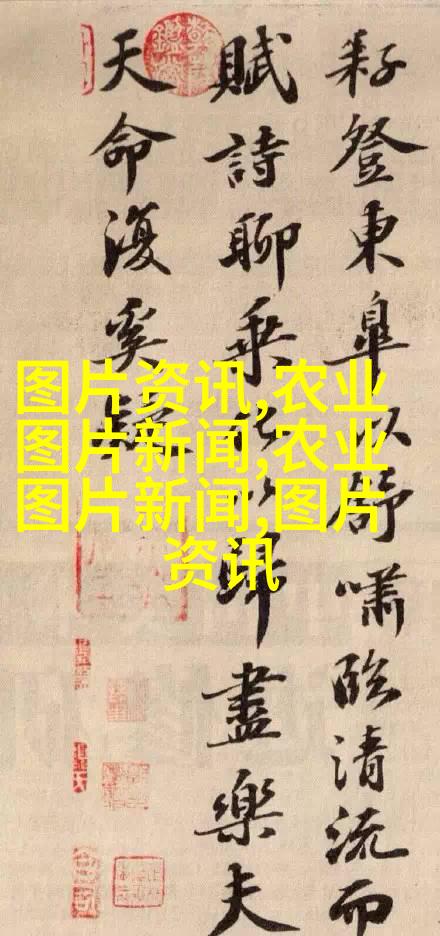 耔登東皋以舒嘯臨清流而
賦詩聊乘化以歸盡樂夫
天命復奚疑
图片资讯,农业
图片新闻,农业
图片新闻,图片
资讯